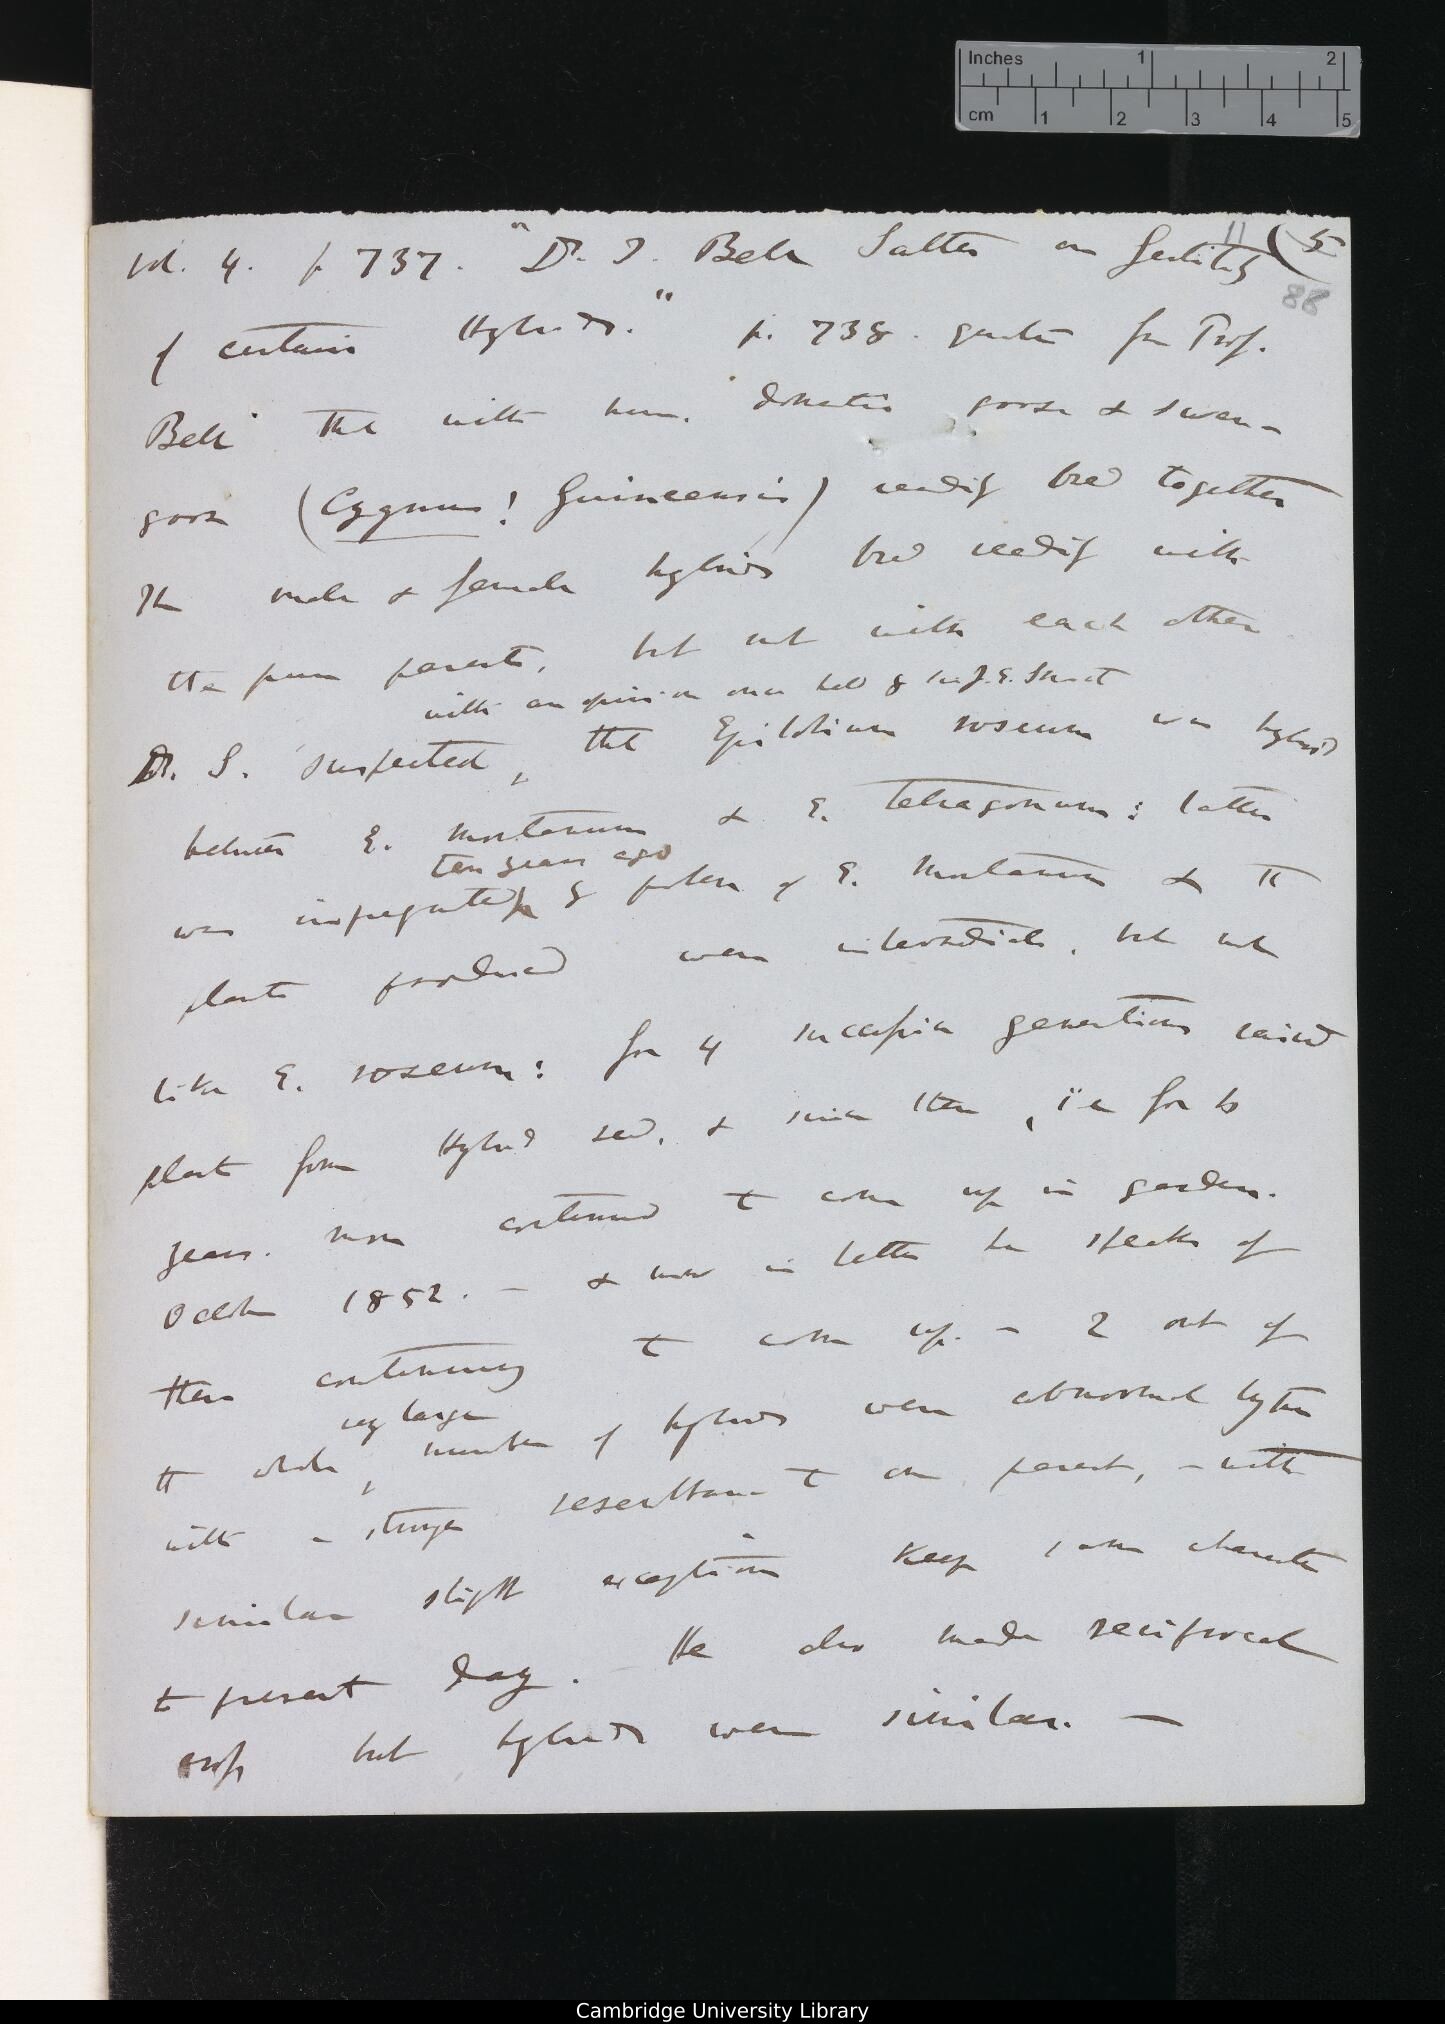 Inches 1 2
cm 1 2 3 4 5
11 (5
88
vol. 4. p 737. "Dr. J. Bell Salter on fertility
of certain Hybrids." p. 738. quotes from Prof.
Bell that with him. domestic goose & swan-
goose (Cygnus! Guineensis) readily bred together
The male & female hybrids bred readily with
the pure parents, but not with each other
with an opinion once held by Sir J. E. Smith
Dr. S. suspected, that Epilobium roseum was hybrid
between E. montanum & E. tetragonum: latter
ten years ago
was impregnated by pollen of E. montanum & the
plants produced were intermediate, but not
like E. roseum: for 4 successive generations raised
plant from Hybrid seed, & since then, i.e. for 6
years. more continued to come up in garden.
October 1852. — & now in letter he speaks of
them continuing to come up. — 2 out of
very large
the whole, number of hybrids were abnormal
with a stronger resemblance to one parent, — with
similar slight exceptions keep same character
to present day. — He also made reciprocal
cross but hybrids were similar. —
Cambridge University Library